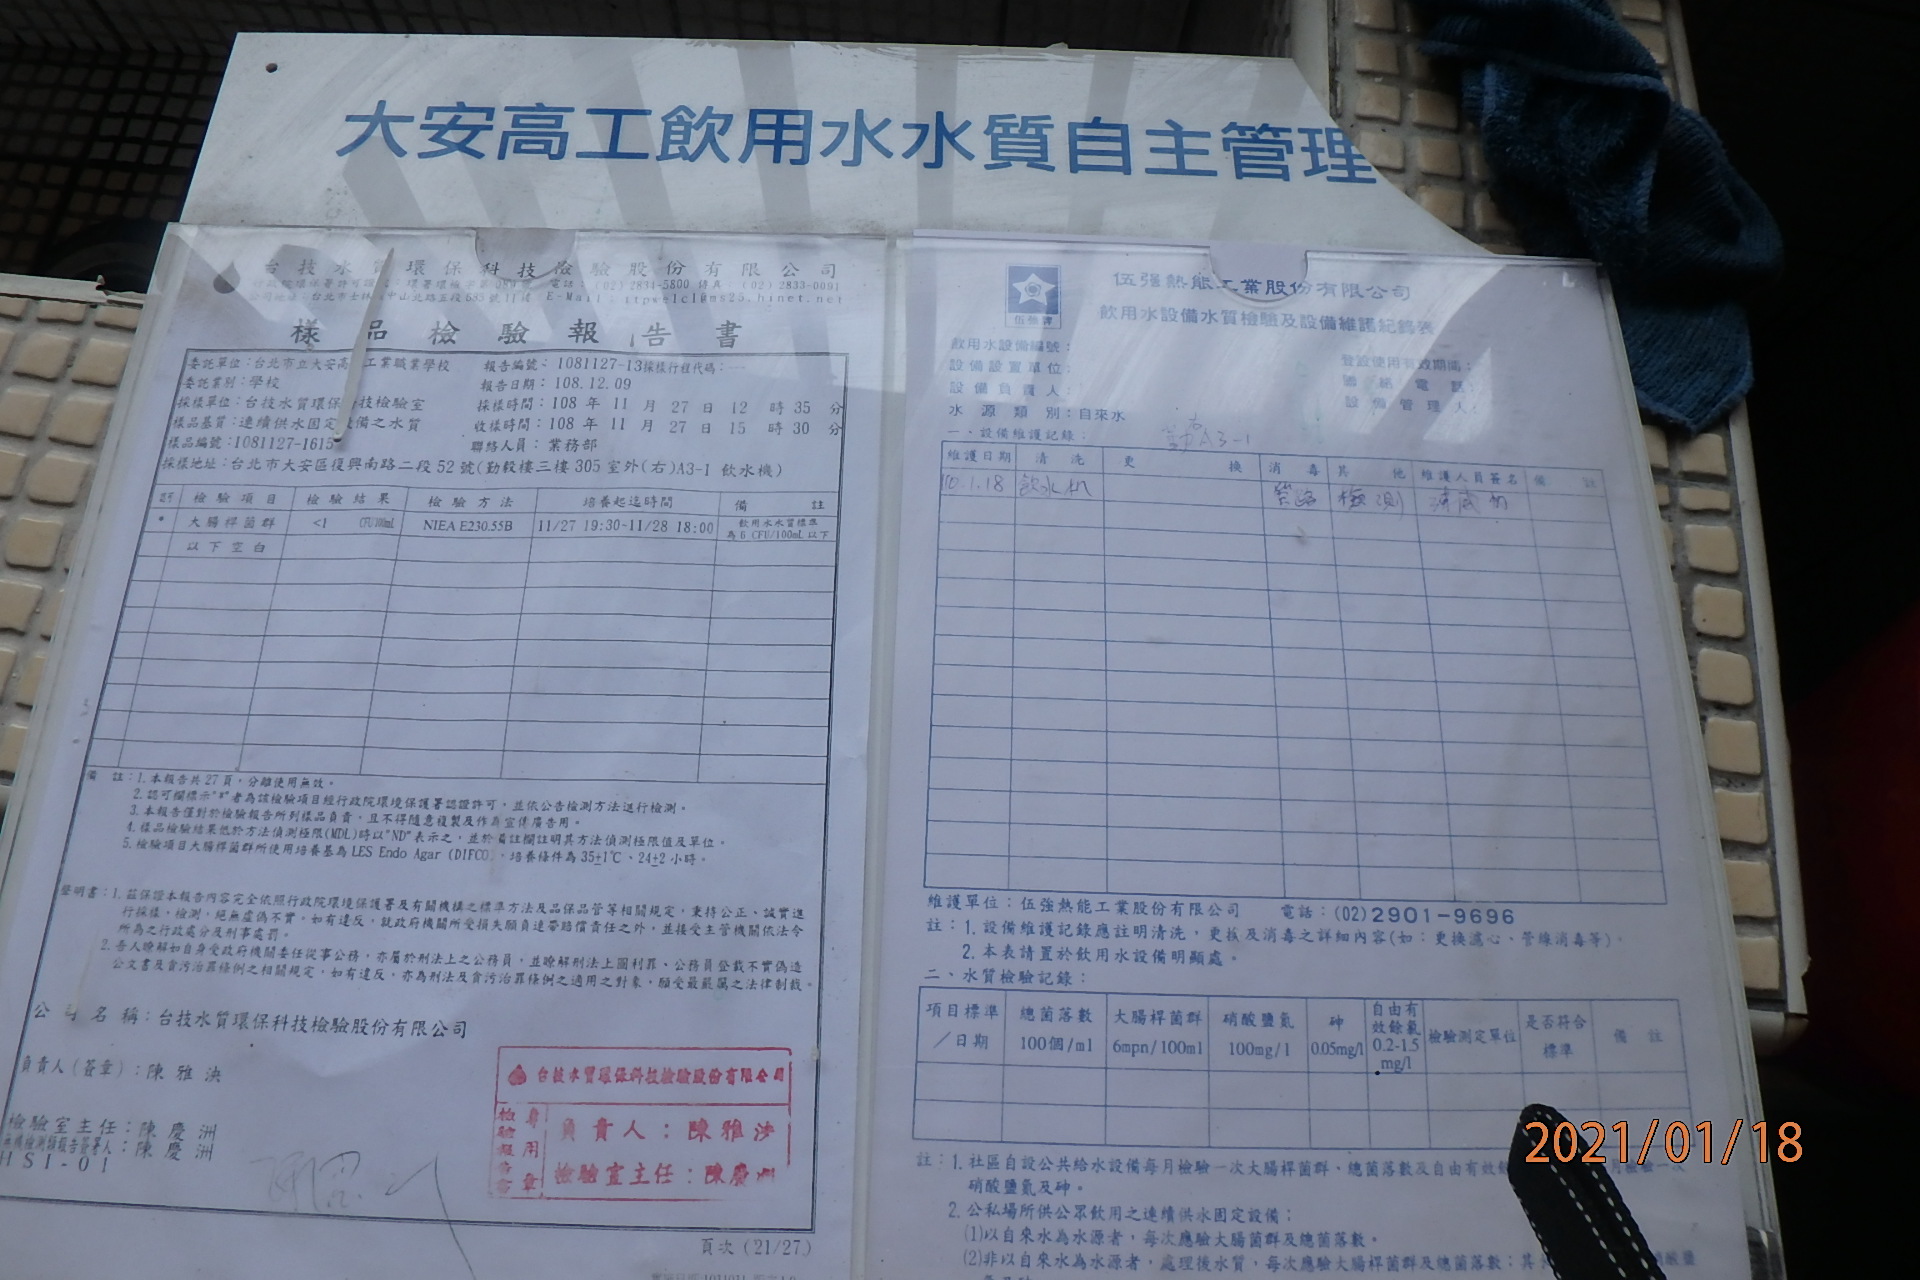 大安高工飲用水水質自主管理
台技水質環保科技檢驗股份有限公司
電話:(02)2834-5800 傳真:(02)2833-0091
台北市士林 中山北路五段685號11樓 E-Mail
樣品檢驗報告書
委託單位:台北市立大安高 工業職業學校 報告編號:1081127-13採樣行程代碼:---
委託業別:學校 報告日期:108.12.09
採樣單位:台技水質環保 技檢驗室 採樣時間:108 年 11 月 27 日 12 時 35 分
樣品基質:連續供水固定 備之水質 收樣時間:108 年 11 月 27 日 15 時 30 分
樣品編號:1081127-1615 聯絡人員:業務部
採樣地址:台北市大安區復興南路二段52號(勤毅樓三樓305室外(右)A3-1 飲水機)
檢驗項目 檢驗結果 檢驗方法 培養起迄時間 備註
* 大腸桿菌群 <1 CFU/100mL NIEA E230.55B 11/27 19:30~11/28 18:00 飲用水水質標準
為6 CFU/100mL以下
以下空白
備註:1.本報告共27頁,分離使用無效。
2.認可欄標示"*"者為該檢驗項目經行政院環境保護署認證許可,並依公告檢測方法進行檢測。
3.本報告僅對於檢驗報告所列樣品負責,且不得隨意複製及作為宣傳廣告用。
4.樣品檢驗結果低於方法偵測極限(MDL)時以"ND"表示之,並於備註欄註明其方法偵測極限值及單位。
5.檢驗項目大腸桿菌群所使用培養基為LES Endo Agar (DIFCO),培養條件為35±1℃、24±2小時。
聲明書:1.茲保證本報告內容完全依照行政院環境保護署及有關機構之標準方法及品保品管等相關規定,秉持公正、誠實進
行採樣,檢測,絕無虛偽不實。如有違反,就政府機關所受損失願負連帶賠償責任之外,並接受主管機關依法令
所為之行政處分及刑事處罰。
2.吾人瞭解如自身受政府機關委任從事公務,亦屬於刑法上之公務員,並瞭解刑法上圖利罪、公務員登載不實偽造
公文書及貪污治罪條例之相關規定,如有違反,亦為刑法及貪污治罪條例之適用之對象,願受最嚴厲之法律制裁。
公司名稱:台技水質環保科技檢驗股份有限公司
負責人(簽章):陳雅泱
檢驗室主任:陳慶洲
無機檢測類報告簽署人:陳慶洲
HSI-01
台技水質環保科技檢驗股份有限公司
檢驗報告專用章
負責人:陳雅泱
檢驗室主任:陳慶洲
頁次(21/27)
伍強牌
伍強熱能工業股份有限公司
飲用水設備水質檢驗及設備維護紀錄表
飲用水設備編號:
設備設置單位: 登錄使用有效期間:
設備負責人: 聯絡電話:
水源類別:自來水 設備管理人:
一、設備維護記錄: 勤A3-1
維護日期 清洗 更換 消毒 其他 維護人員簽名 備註
110.1.18 飲水机 管路 檢測
維護單位:伍強熱能工業股份有限公司 電話:(02)2901-9696
註:1.設備維護記錄應註明清洗,更換及消毒之詳細內容(如:更換濾心、管線消毒等)。
2.本表請置於飲用水設備明顯處。
二、水質檢驗記錄:
項目標準/日期 總菌落數 100個/ml 大腸桿菌群 6mpn/100ml 硝酸鹽氮 100mg/l 砷 0.05mg/l 自由有效餘氯 0.2-1.5 mg/l 檢驗測定單位 是否符合標準 備註
註:1.社區自設公共給水設備每月檢驗一次大腸桿菌群、總菌落數及自由有效餘 月檢驗一次
硝酸鹽氮及砷。
2.公私場所供公眾飲用之連續供水固定設備:
(1)以自來水為水源者,每次應驗大腸菌群及總菌落數。
(2)非以自來水為水源者,處理後水質,每次應驗大腸桿菌群及總菌落數:其
2021/01/18